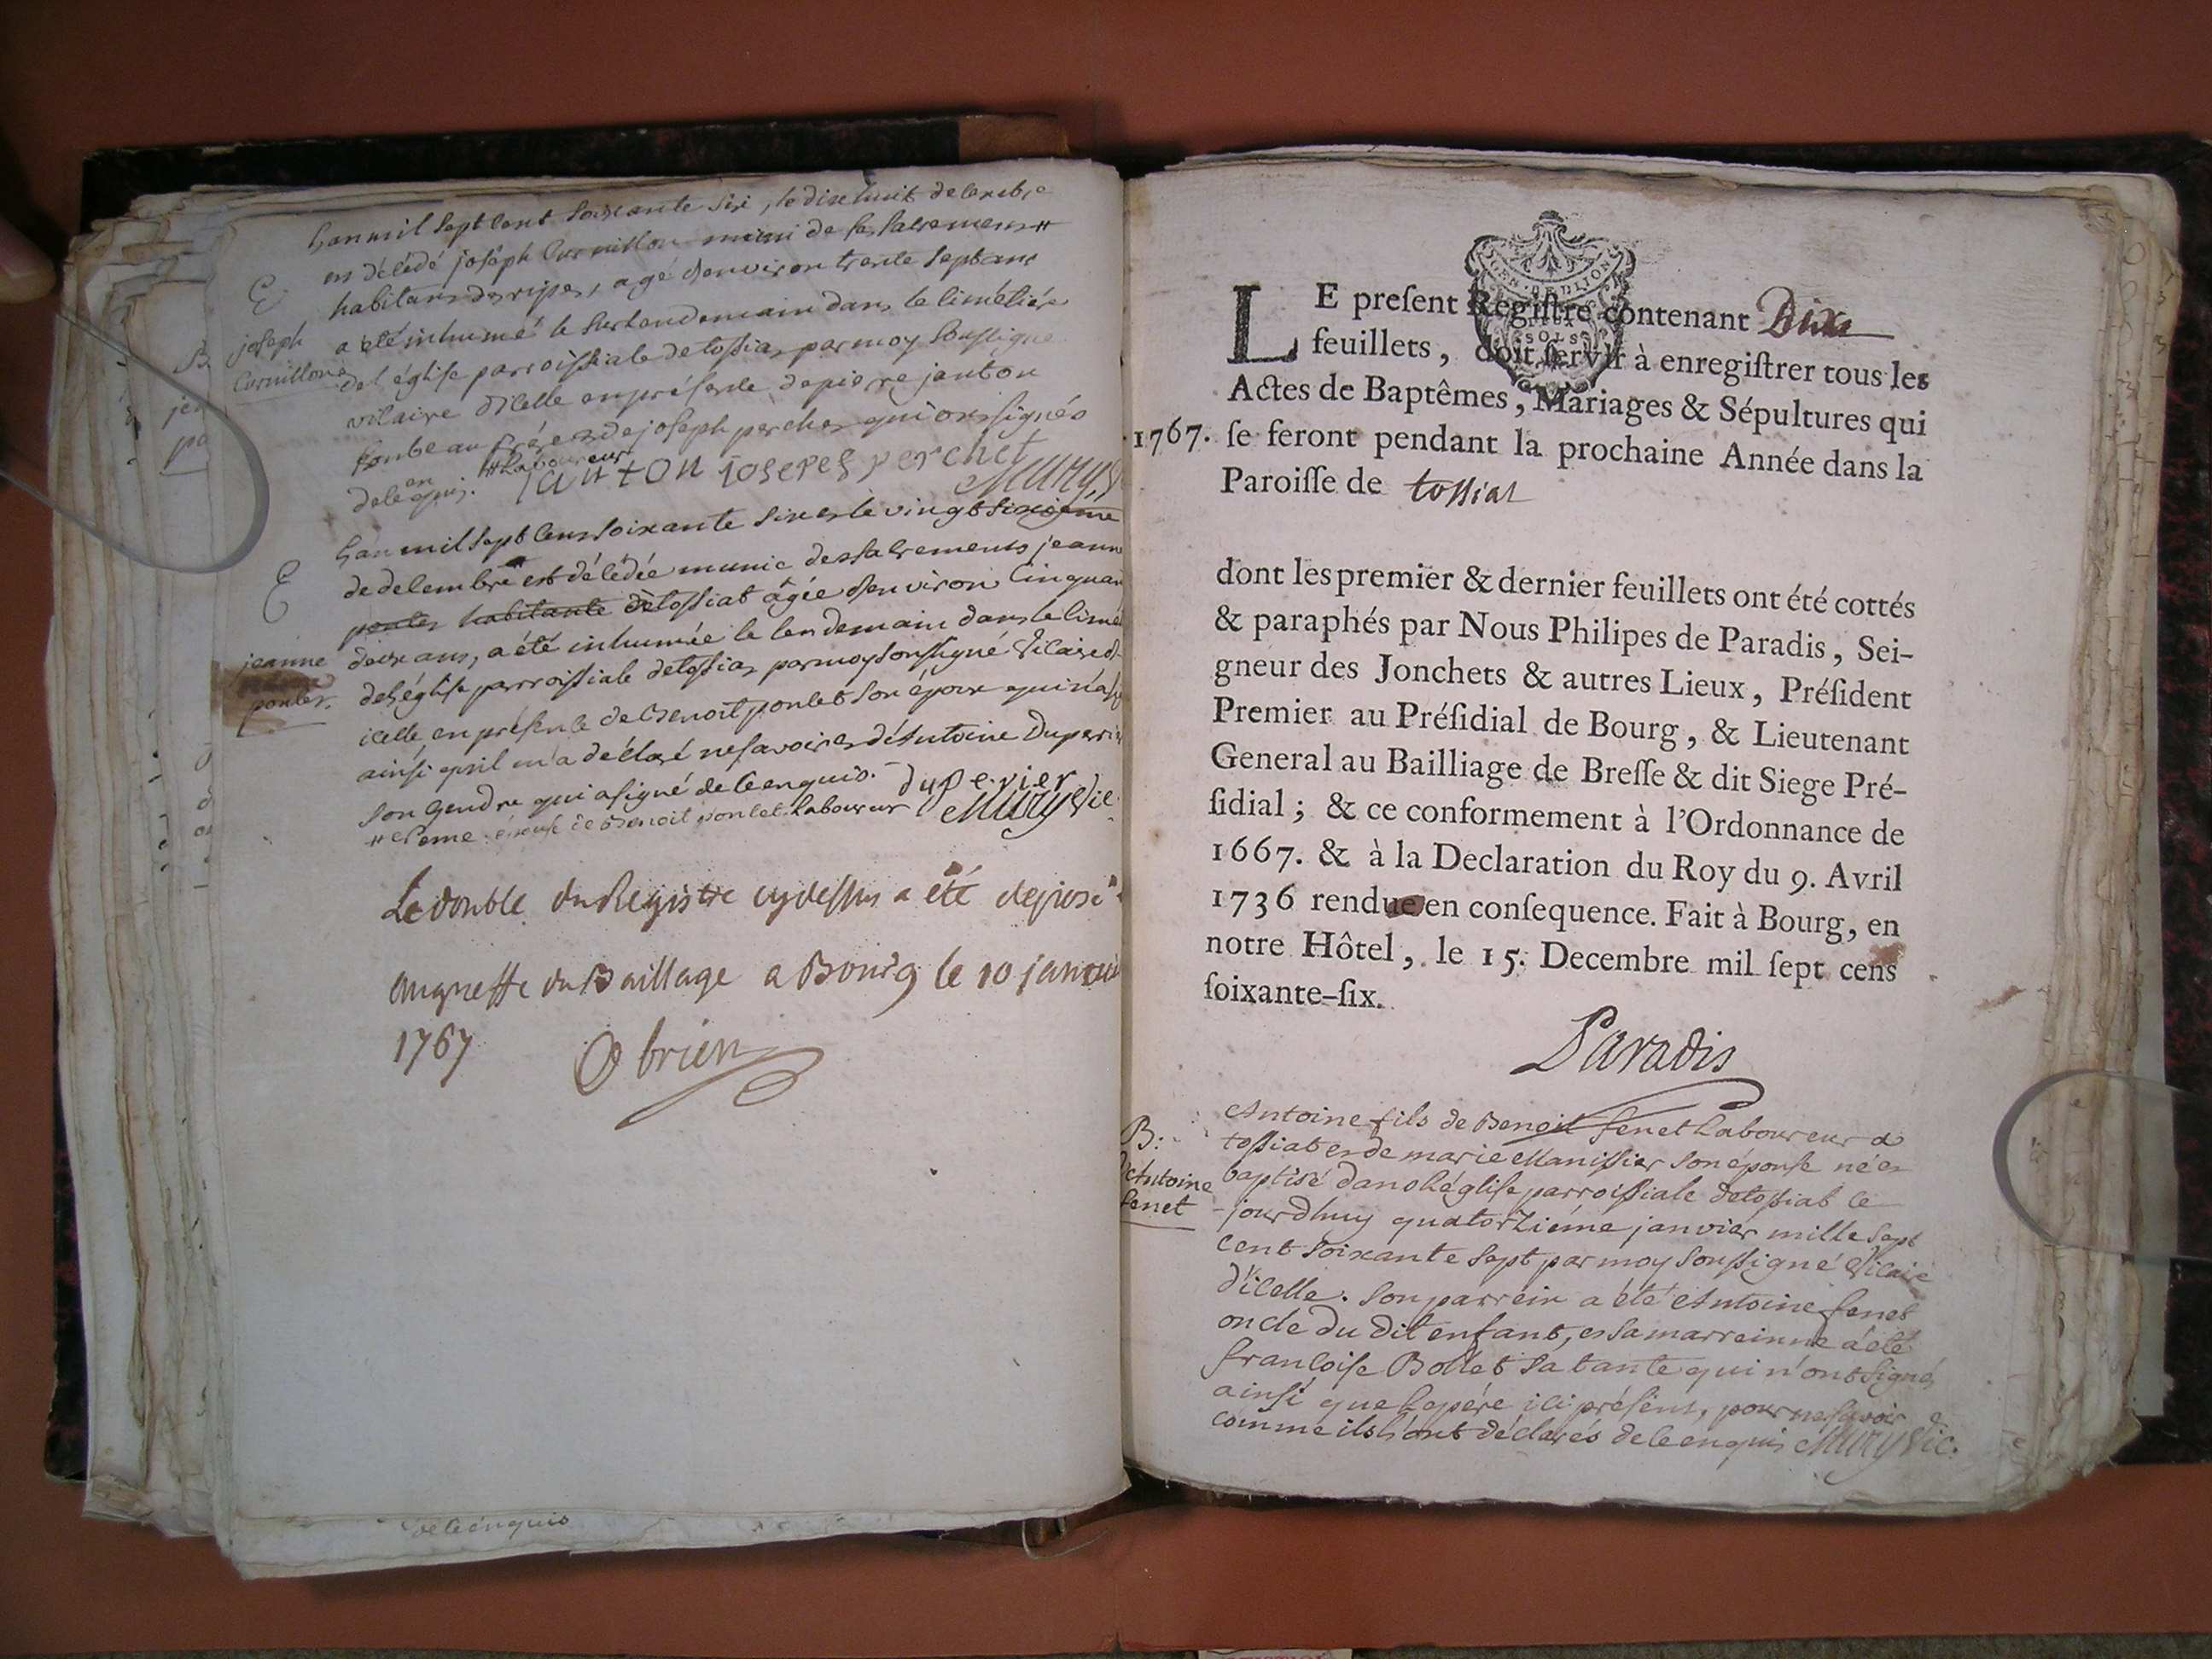 Lan mil sept cent soixante six, le dixhuit decembre
est décédé joseph Curnillon muni de ses sacremens #
habitans des ripes, agé denviron trente sept ans
a été inhumé le surlendemain dans le cimétiére
de l'église parroissiale de tossiat par moy soussigné
vicaire d'icelle en présence de pierre janton
son beau frére et de joseph perchet qui ont signés
de ce enquis. # laboureur
E
joseph
Curnillon
janton joseph perchet
Mury
Lan mil sept cens soixante six et le vingt sixiéme
de decembre est décédée munie des sacremens jeanne
poulet habitante de tossiat agée denviron cinquan
deux ans, a été inhumée le lendemain dans le cimé
de l'église parroissiale de tossiat par moy soussigné vicaire d
icelle en présence de Benoit poulet son époux qui n'a
ainsi qu'il m'a déclaré ne savoir et d'Antoine Duperier
son gendre qui a signé de ce enquis.
E
jeanne
poulet
duperier
# épouse de Benoit poulet laboureur Mury vic.
Le double du Registre cy dessus a été deposé
au greffe du Baillage a Bourg le 10 janvier
1767 Obrien
de ce enquis
GEN. DE DIJON
SOLS
LE preſent Regiſtre contenant Dix
feuillets, doit ſervir à enregiſtrer tous les
Actes de Baptêmes, Mariages & Sépultures qui
1767. ſe feront pendant la prochaine Année dans la
Paroiſſe de tossiat
dont les premier & dernier feuillets ont été cottés
& paraphés par Nous Philipes de Paradis, Sei-
gneur des Jonchets & autres Lieux, Préſident
Premier au Préſidial de Bourg, & Lieutenant
General au Bailliage de Breſſe & dit Siege Pré-
ſidial ; & ce conformement à l'Ordonnance de
1667. & à la Declaration du Roy du 9. Avril
1736 rendue en conſequence. Fait à Bourg, en
notre Hôtel, le 15. Decembre mil ſept cens
ſoixante-ſix.
Paradis
B:
Antoine
fenet
Antoine fils de Benoit fenet laboureur a
tossiat et de marie Manissier son épouse né et
baptisé dans l'église parroissiale de tossiat ce
jourdhuy quatorziéme janvier mille sept
cent soixante sept par moy soussigné vicaire
d'icelle. son parrein a été Antoine fenet
oncle du dit enfant, et sa marreinne a été
francoise Bollet sa tante qui n'ont signés
ainsi que le pére ici présent, pour ne savoir
comme ils l'ont déclarés de ce enquis Mury vic.